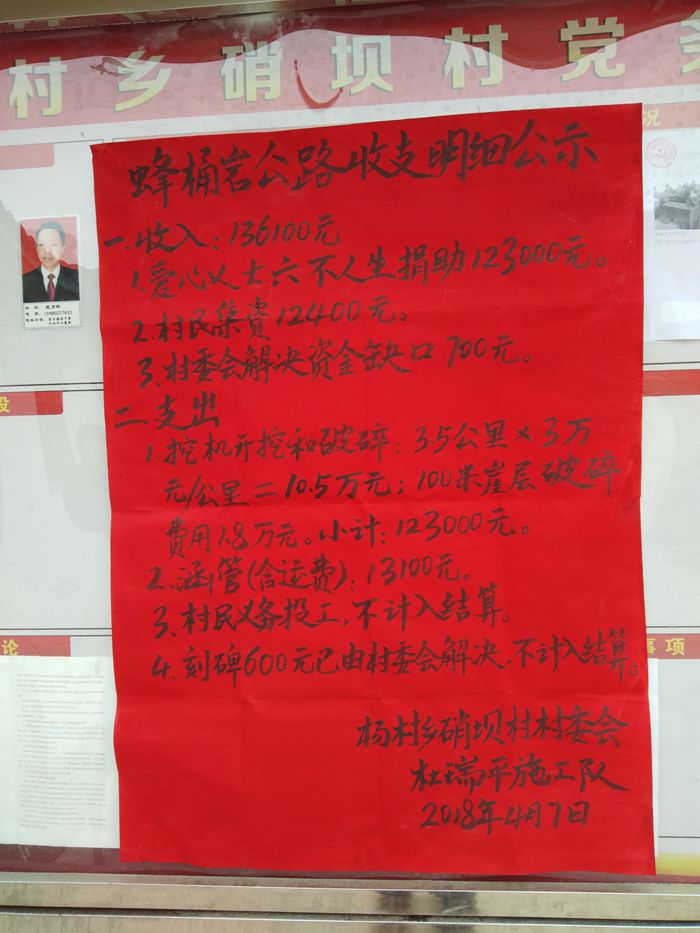 村乡硝坝村党
况
蜂桶岩公路收支明细公示
一.收入：136100元
1.爱心人士六不人生捐助123000元。
2.村民集资12400元。
3.村委会解决资金缺口700元。
二.支出
1.挖机开挖和破碎：3.5公里×3万
元/公里=10.5万元；100米崖层破碎
费用1.8万元。小计：123000元。
2.涵管(含运费)：13100元。
3.村民义务投工,不计入结算。
4.刻碑600元已由村委会解决,不计入结算。
杨村乡硝坝村村委会
杜瑞平施工队
2018年4月7日
设
论
事项